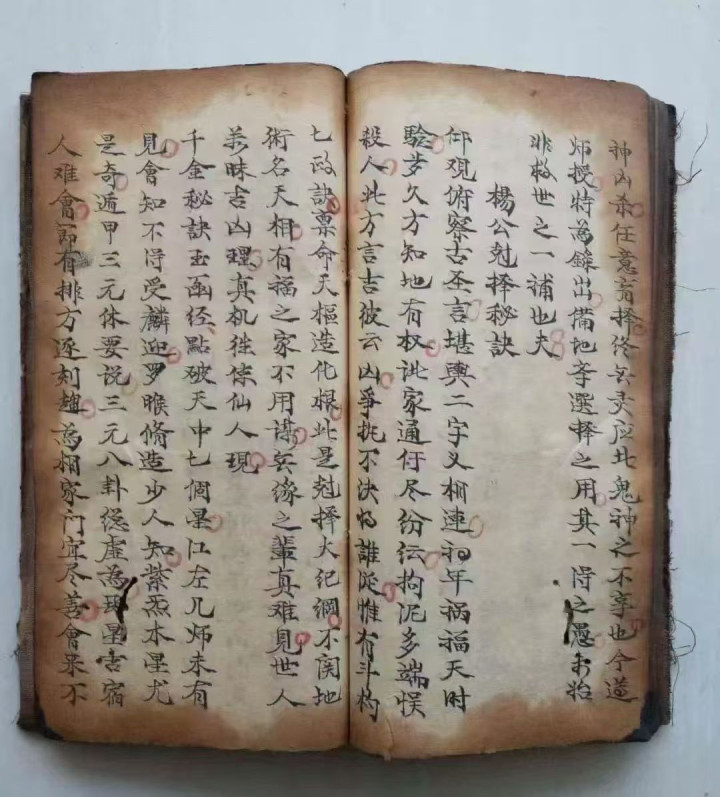 神凶杀任意盲择终無灵应此鬼神之不享也今遵
师授特為錄出備地荨選择之用其一得之愚未始
非救世之一補也夫
楊公尅择秘訣
仰观俯察古圣言堪輿二字义相連初年祸福天时
驗岁久方知地有权诎家通行尽纷纭拘泥多端悮
殺人此方言吉彼云凶爭执不决将誰從惟有斗杓
七政訣禀命天樞造化根此是尅择大纪綱不関地
術名天相有福之家不用谋無缘之輩真难見世人
茶昧吉凶理真机往㑹仙人現
千金秘訣玉函经點破天中七個星江左几师未有
見會知不得受麟迎罗睺脩造少人知紫炁木星尤
是奇遁甲三元休要说三元八卦総虛為珼星舍宿
人难會節有排方逐刻趨為相家门宜尽善會果不